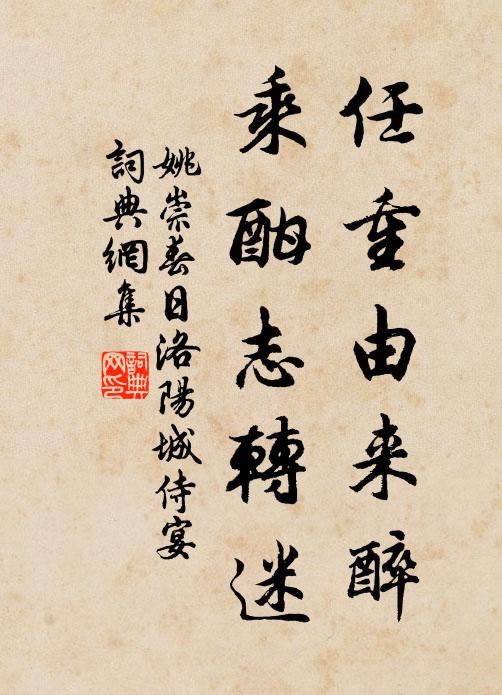 任重由来醉
乘酣志轉迷
姚崇春日洛陽城侍宴
詞典網集
詞典網印